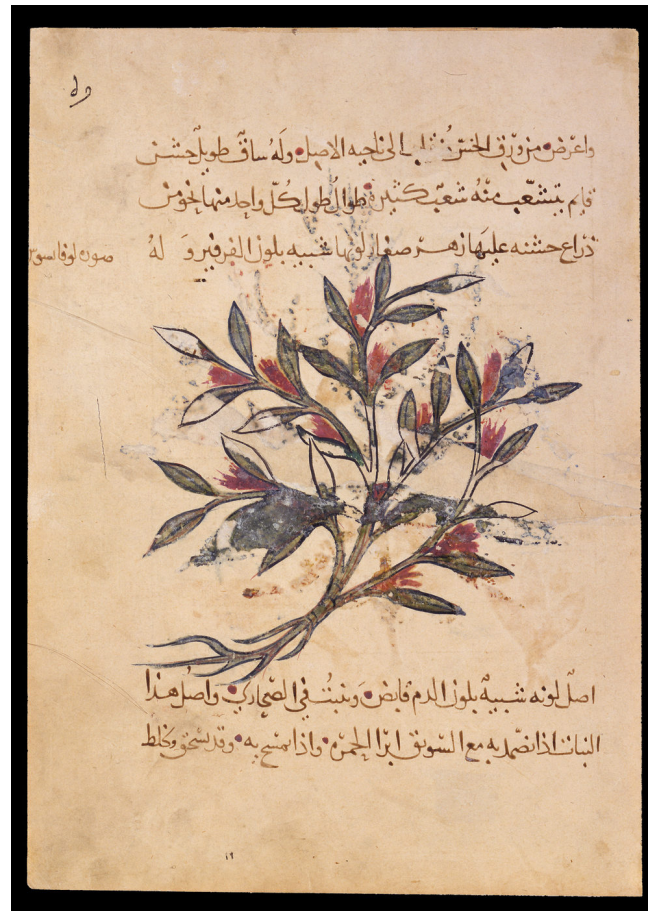 واعرض من ورق الخس الى ناحيه الاصل وله ساق طويل خشن
قايم يتشعب منه شعب كثيره طوال طول كل واحد منها نحو من
ذراع خشنه عليها زهر صغار لونها شبيه بلون الفرفير وله
صوره لوفابسوس
اصل لونه شبيه بلون الدم قابض وينبت في الصحارى واصل هذا
النبات اذا تضمد به مع السويق ابرا الحمره واذا تمسح به وقد سحق وخلط
١٩